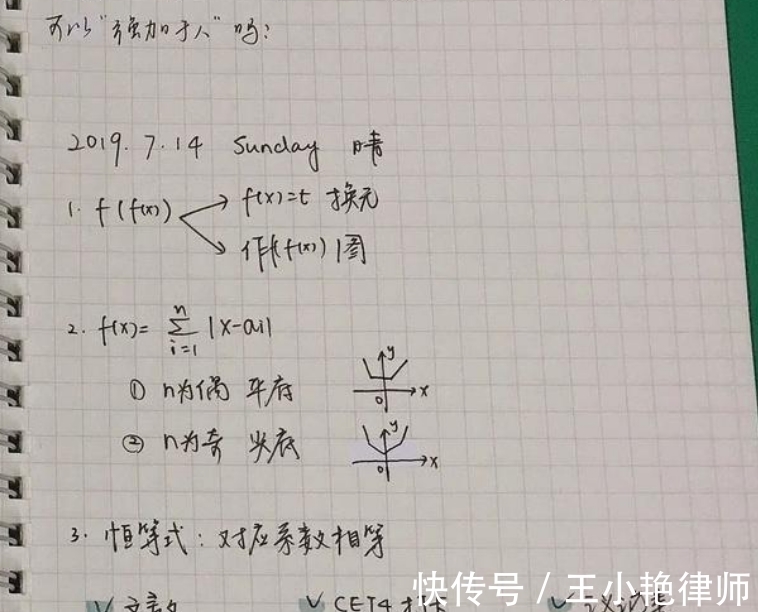 可以“强加于人”吗?
2019. 7. 14 Sunday 晴
1. f(f(x)) f(x)=t 换元
作f(f(x))图
2. f(x)= n∑i=1 |x-ai|
① n为偶 平底
y
0 x
② n为奇 尖底
y
0 x
3. 恒等式: 对应系数相等
CET4
快传号 / 王小艳律师